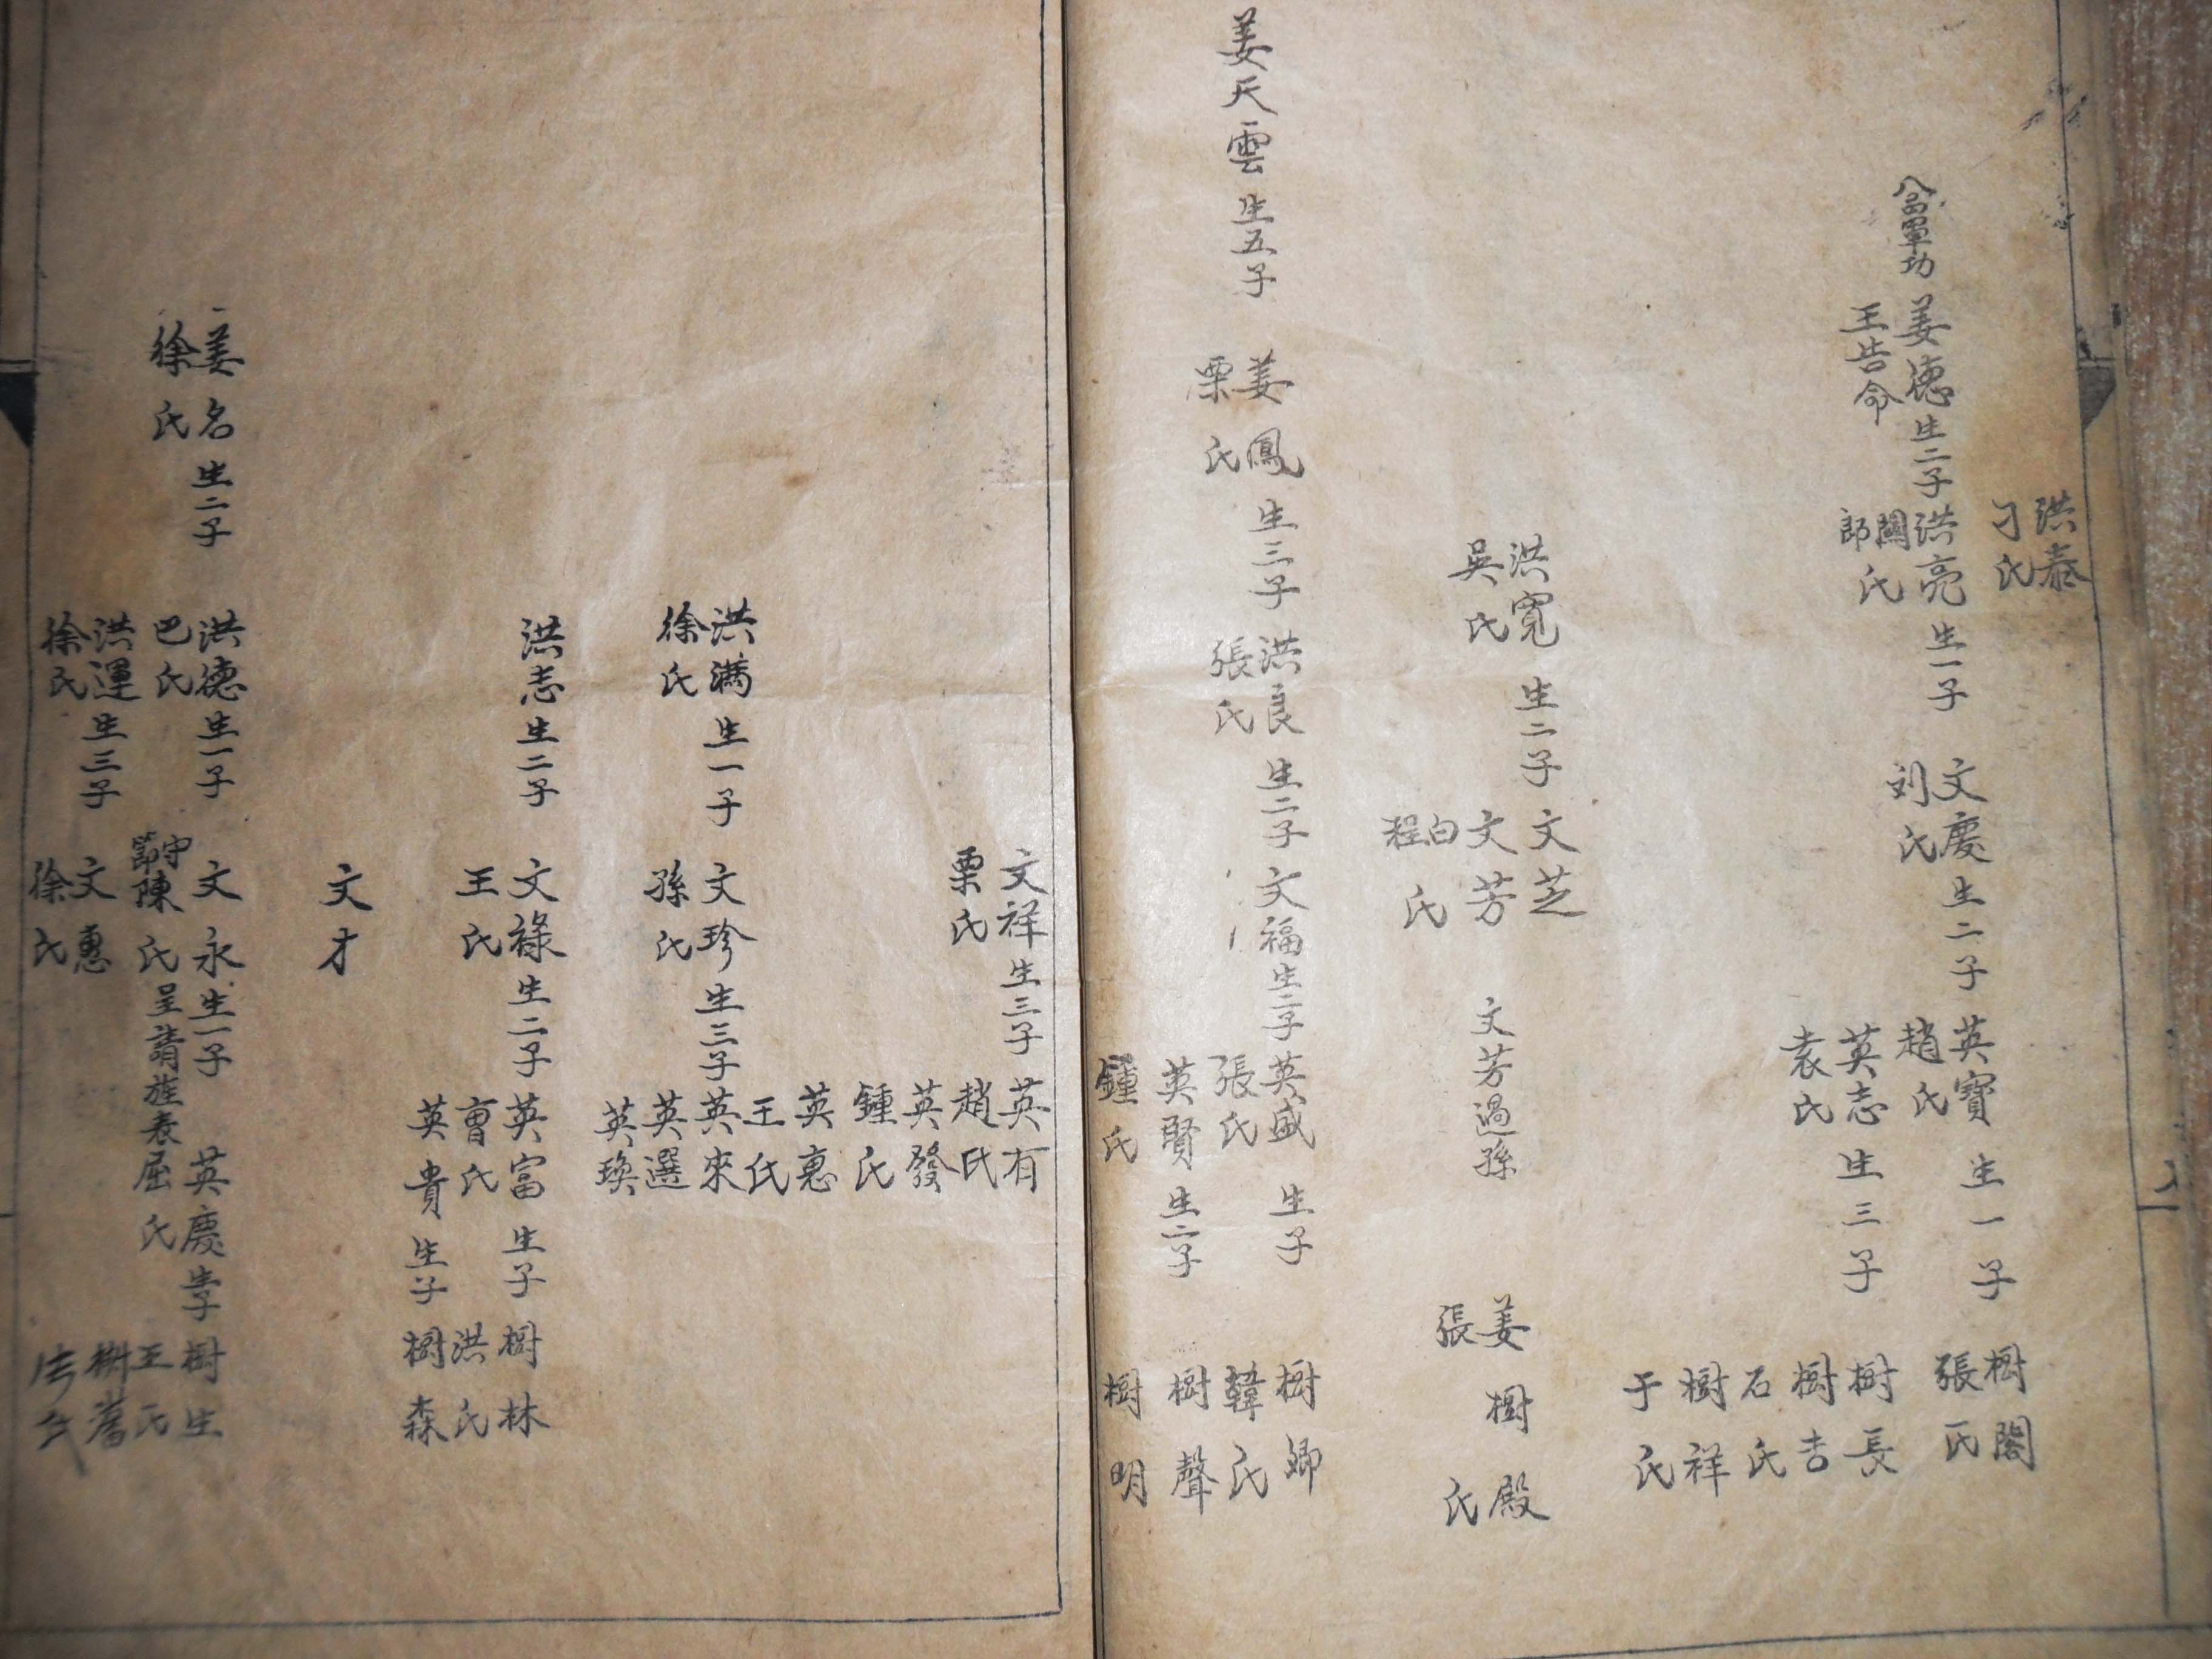 洪泰
刁氏
姜德生二子
王告命
洪亮生一子
關郎氏
文慶生二子
刘氏
英寶生一子
趙氏
英志生三子
袁氏
樹閣
張氏
樹長
樹吉
石氏
樹祥
于氏
洪寬生二子
吳氏
文芝
文芳
白程氏
文芳過孫
姜樹殿
張氏
姜天雲生五子
姜鳳生三子
栗氏
洪良生二子
張氏
文福生二子
英盛生子
張氏
英賢生二子
鍾氏
樹卿
韓氏
樹聲
樹明
文祥生三子
栗氏
英有
趙氏
英發
鍾氏
英惠
王氏
洪滿生一子
徐氏
文珍生三子
孫氏
英來
英選
英瑛
洪志生二子
文祿生二子
王氏
英富生子
曹氏
英貴生子
樹林
洪氏
樹森
文才
姜名生二子
徐氏
洪德生一子
巴氏
文永生一子
守節陳氏呈請旌表
英慶生子
屈氏
樹生
王氏
洪運生三子
徐氏
文惠
徐氏